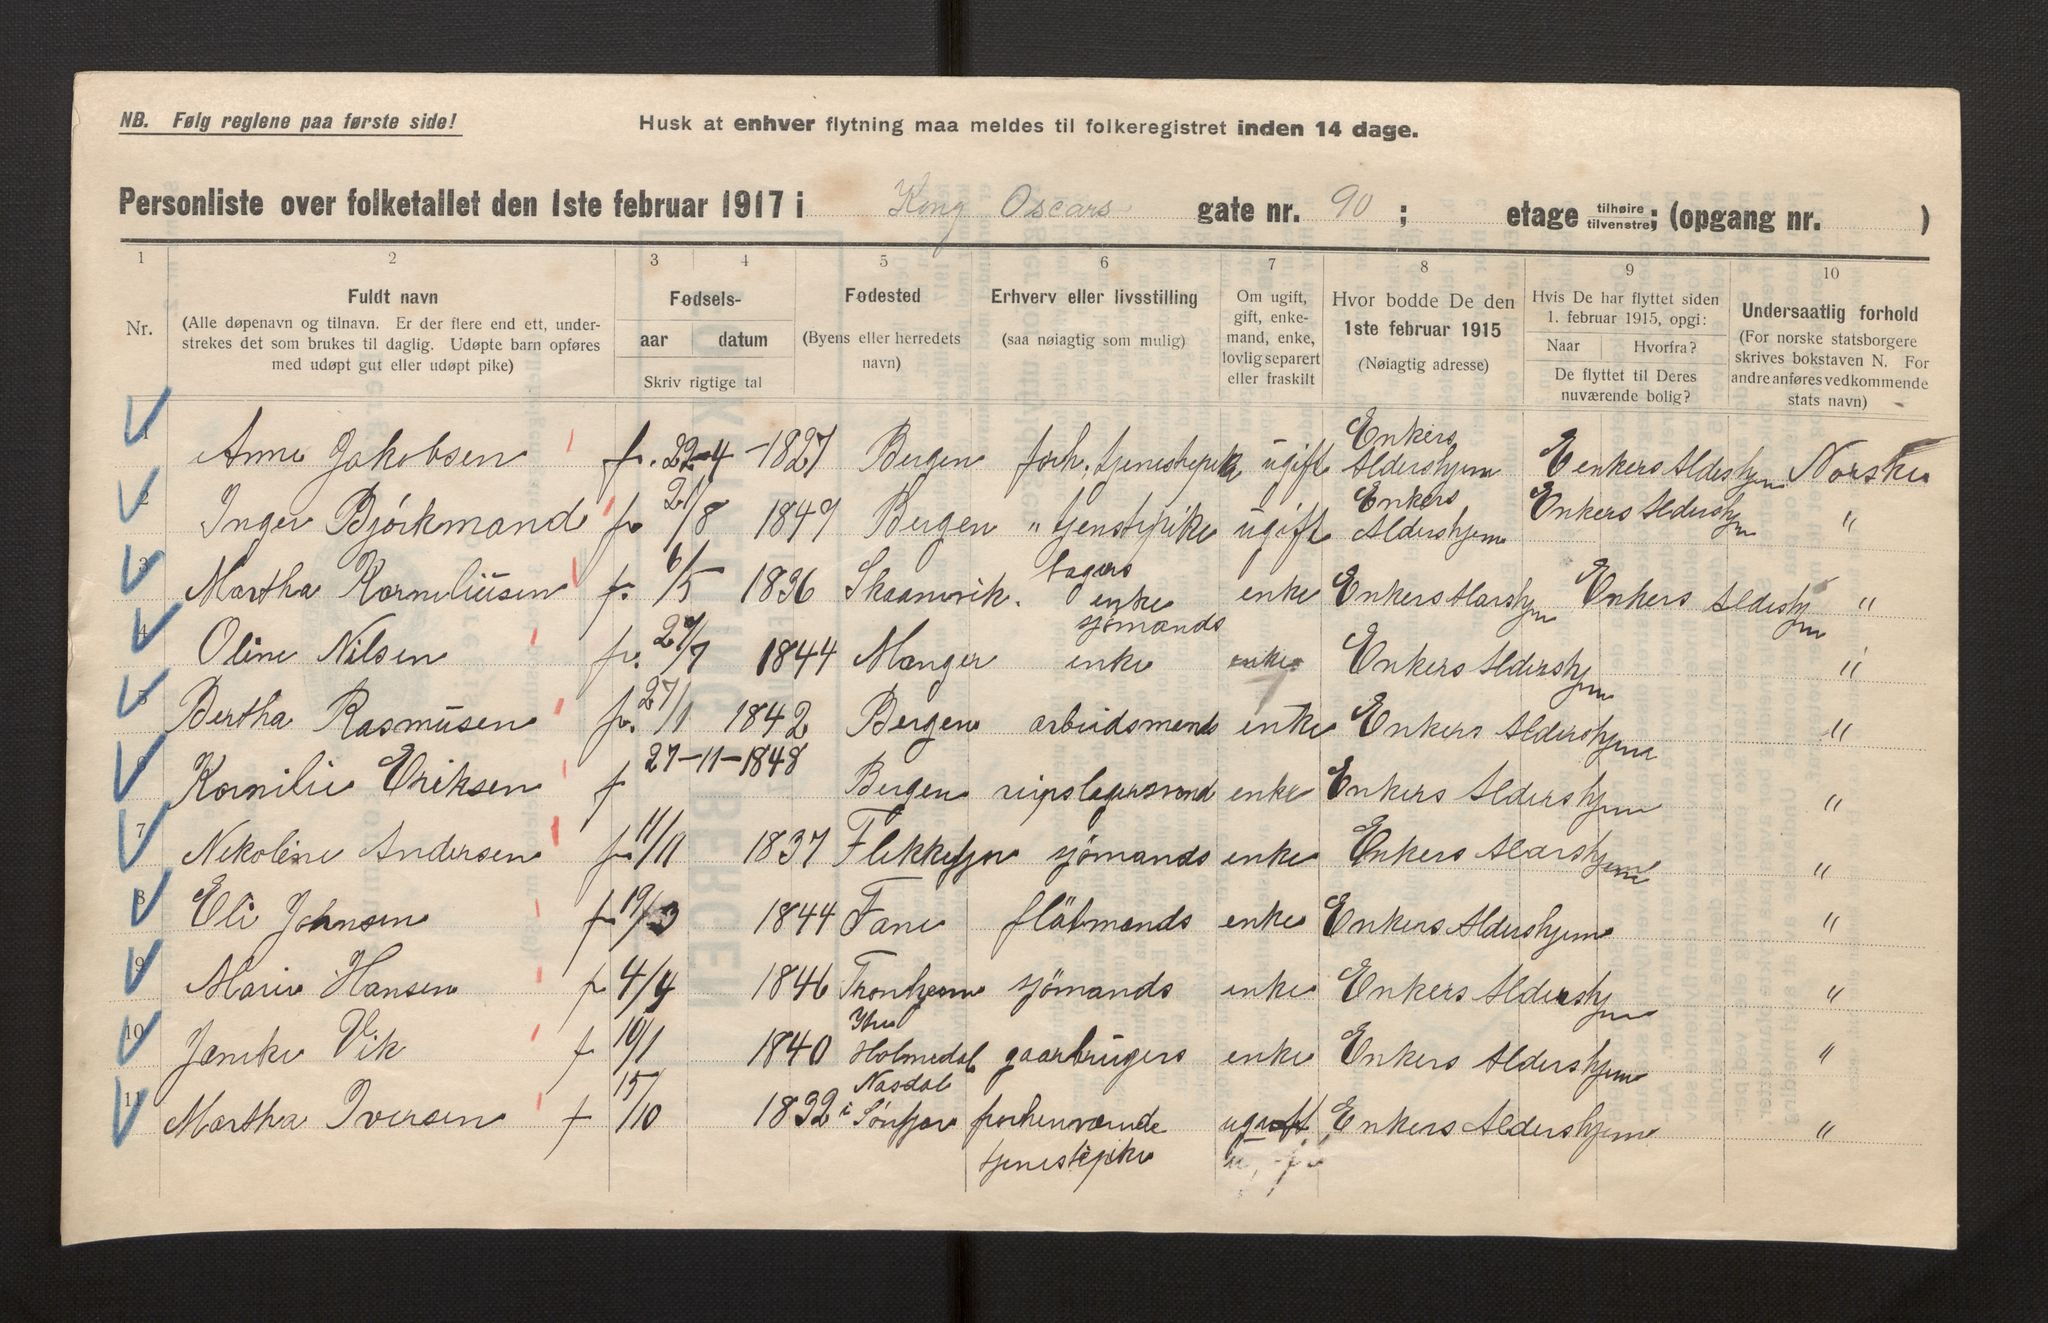 NB. Følg reglene paa første side!
Husk at enhver flytning maa meldes til folkeregistret inden 14 dage.
Personliste over folketallet den 1ste februar 1917 i Kong Oscars gate nr. 90 ; etage tilhøire tilvenstre; (opgang nr. )
1 2 3 4 5 6 7 8 9 10
Nr.
Fuldt navn
(Alle døpenavn og tilnavn. Er der flere end ett, under-
strekes det som brukes til daglig. Udøpte barn opføres
med udøpt gut eller udøpt pike)
Fødsels-
aar datum
Skriv rigtige tal
Fødested
(Byens eller herredets
navn)
Erhverv eller livsstilling
(saa nøiagtig som mulig)
Om ugift,
gift, enke-
mand, enke,
lovlig separert
eller fraskilt
Hvor bodde De den
1ste februar 1915
(Nøiagtig adresse)
Hvis De har flyttet siden
1. februar 1915, opgi:
Naar Hvorfra?
De flyttet til Deres
nuværende bolig?
Undersaatlig forhold
(For norske statsborgere
skrives bokstaven N. For
andre anføres vedkommende
stats navn)
1 Anne Jakobsen f. 22-4-1827 Bergen forh. tjenestepike ugift Enkers Aldershjem Eenkers Aldershjem Norske
2 Inger Bjørkmand f. 21/8 1849 Bergen " tjenstepike ugift Enkers Aldershjem Enkers Aldershjem "
3 Martha Korneliusen f. 6/5 1836 Skaanevik. bagers enke enke Enkers Alarshjem Enkers Aldershjem "
4 Oline Nilsen f. 29/7 1844 Manger sjømands enke enke Enkers Aldershjem "
5 Bertha Rasmusen f. 27/1 1842 Bergen arbeidsmands enke Enkers Aldershjem "
6 Kornilie Eriksen f 27-11-1848 Bergen reipslagersmand enke Enkers Aldershjem "
7 Nekoline Andersen f 11/11 1837 Flekkefjor sjömands enke Enkers Alarshjem "
8 Eli Johnsen f 19/3 1844 Fane flötmands enke Enkers Aldershjem "
9 Marie Hansen f 4/9 1846 Tronhjem sjömands enke Enkers Aldershjem "
10 Jenike Vik f 10/1 1840 Holmedal gaarbrugers enke Enkers Aldershjem "
11 Martha Iversen f 15/10 1832 Nasdal i Sønfjor forhenværende ugift Enkers Aldershjem "
tjenestepike